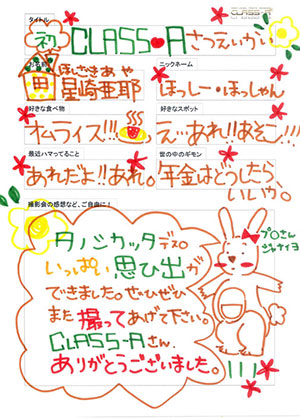 タイトル
祝 CLASS♥Aさつえいかい
お名前
ほしざきあや
星崎亜耶
ニックネーム
ほっしー・ほっしゃん
好きな食べ物
オムライス!!!
好きなスポット
え…あれ!!あそこ!!!
最近ハマってること
あれだよ!!あれ。
世の中のギモン
年金はどうしたら、
いいか。
撮影会の感想など、ご自由に!
タノシカッタデス。
いっぱい思ひ出が
できました。ぜひぜひ
また撮ってあげて下さい。
CLASS-Aさん、
ありがとうございました。
プロさん
ジャナイヨ
!!!